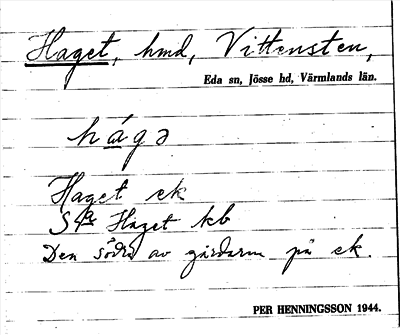 Haget, hmd, Vittensten,
Eda sn, Jösse hd, Värmlands län.
hágə
Haget ek
S4a Haget kb
Den södra av gårdarna på ek.
PER HENNINGSSON 1944.